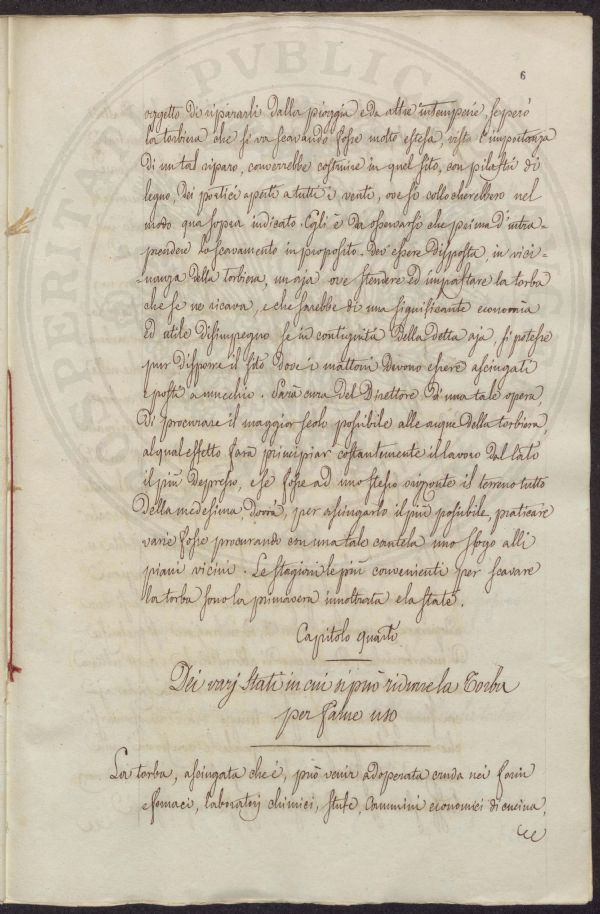 6
oggetto di ripararli dalla pioggia e da altre intemperie, se però
la torbiera che si va scavando fosse molto estesa, visto l'importanza
di un tal riparo, converrebbe costruire in quel sito, con pilastri di
legno, dei portici aperti a tutti i venti, ove si collocherebbero nel
modo qua sopra indicato. Egli è da osservarsi che prima d'intra=
prendere lo scavamento in proposito. Dev'essere disposta, in vici=
=nanza della torbiera, un aja ove stendere ed impastare la torba
che se ne ricava, e che sarebbe di una significante economia
ed utile disimpegno se in contiguità della detta aja, si potesse
pur disporre il sito dove i mattoni devono essere asciugati
e posti a mucchio. Sarà cura del Direttore di una tale opera,
di procurare il maggior scolo possibile alle acque della torbiera,
al qual effetto farà principiar costantemente il lavoro dal lato
il più depresso, e se fosse ad uno stesso il terreno tutto
della medesima, dovrà, per asciugarlo il più possibile, praticare
varie fosse procurando con una tale cautela uno sfogo alli
piani vicini. Le stagioni le più convenienti per scavare
la torba sono la primavera innoltrata e la state.
Capitolo quarto
Dei varj stati in cui si può ridurre la Torba
per farne uso
La torba, asciugata che è, può venir adoperata cruda nei forni
e fornaci, laboratorj chimici, stufe, cammini economici di cucina,
PVBLICA